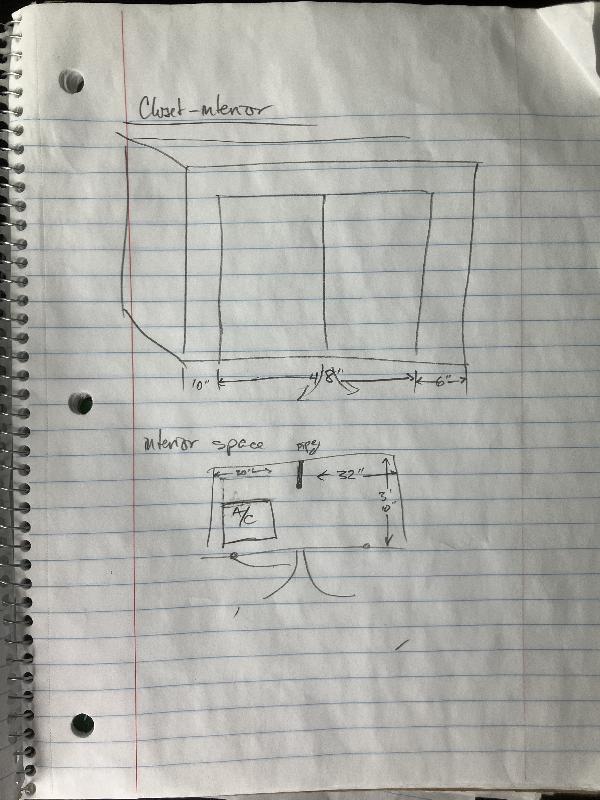 Closet-Interior
10" 4'8" 6"
Interior space Pipe
32"
A/C
3'